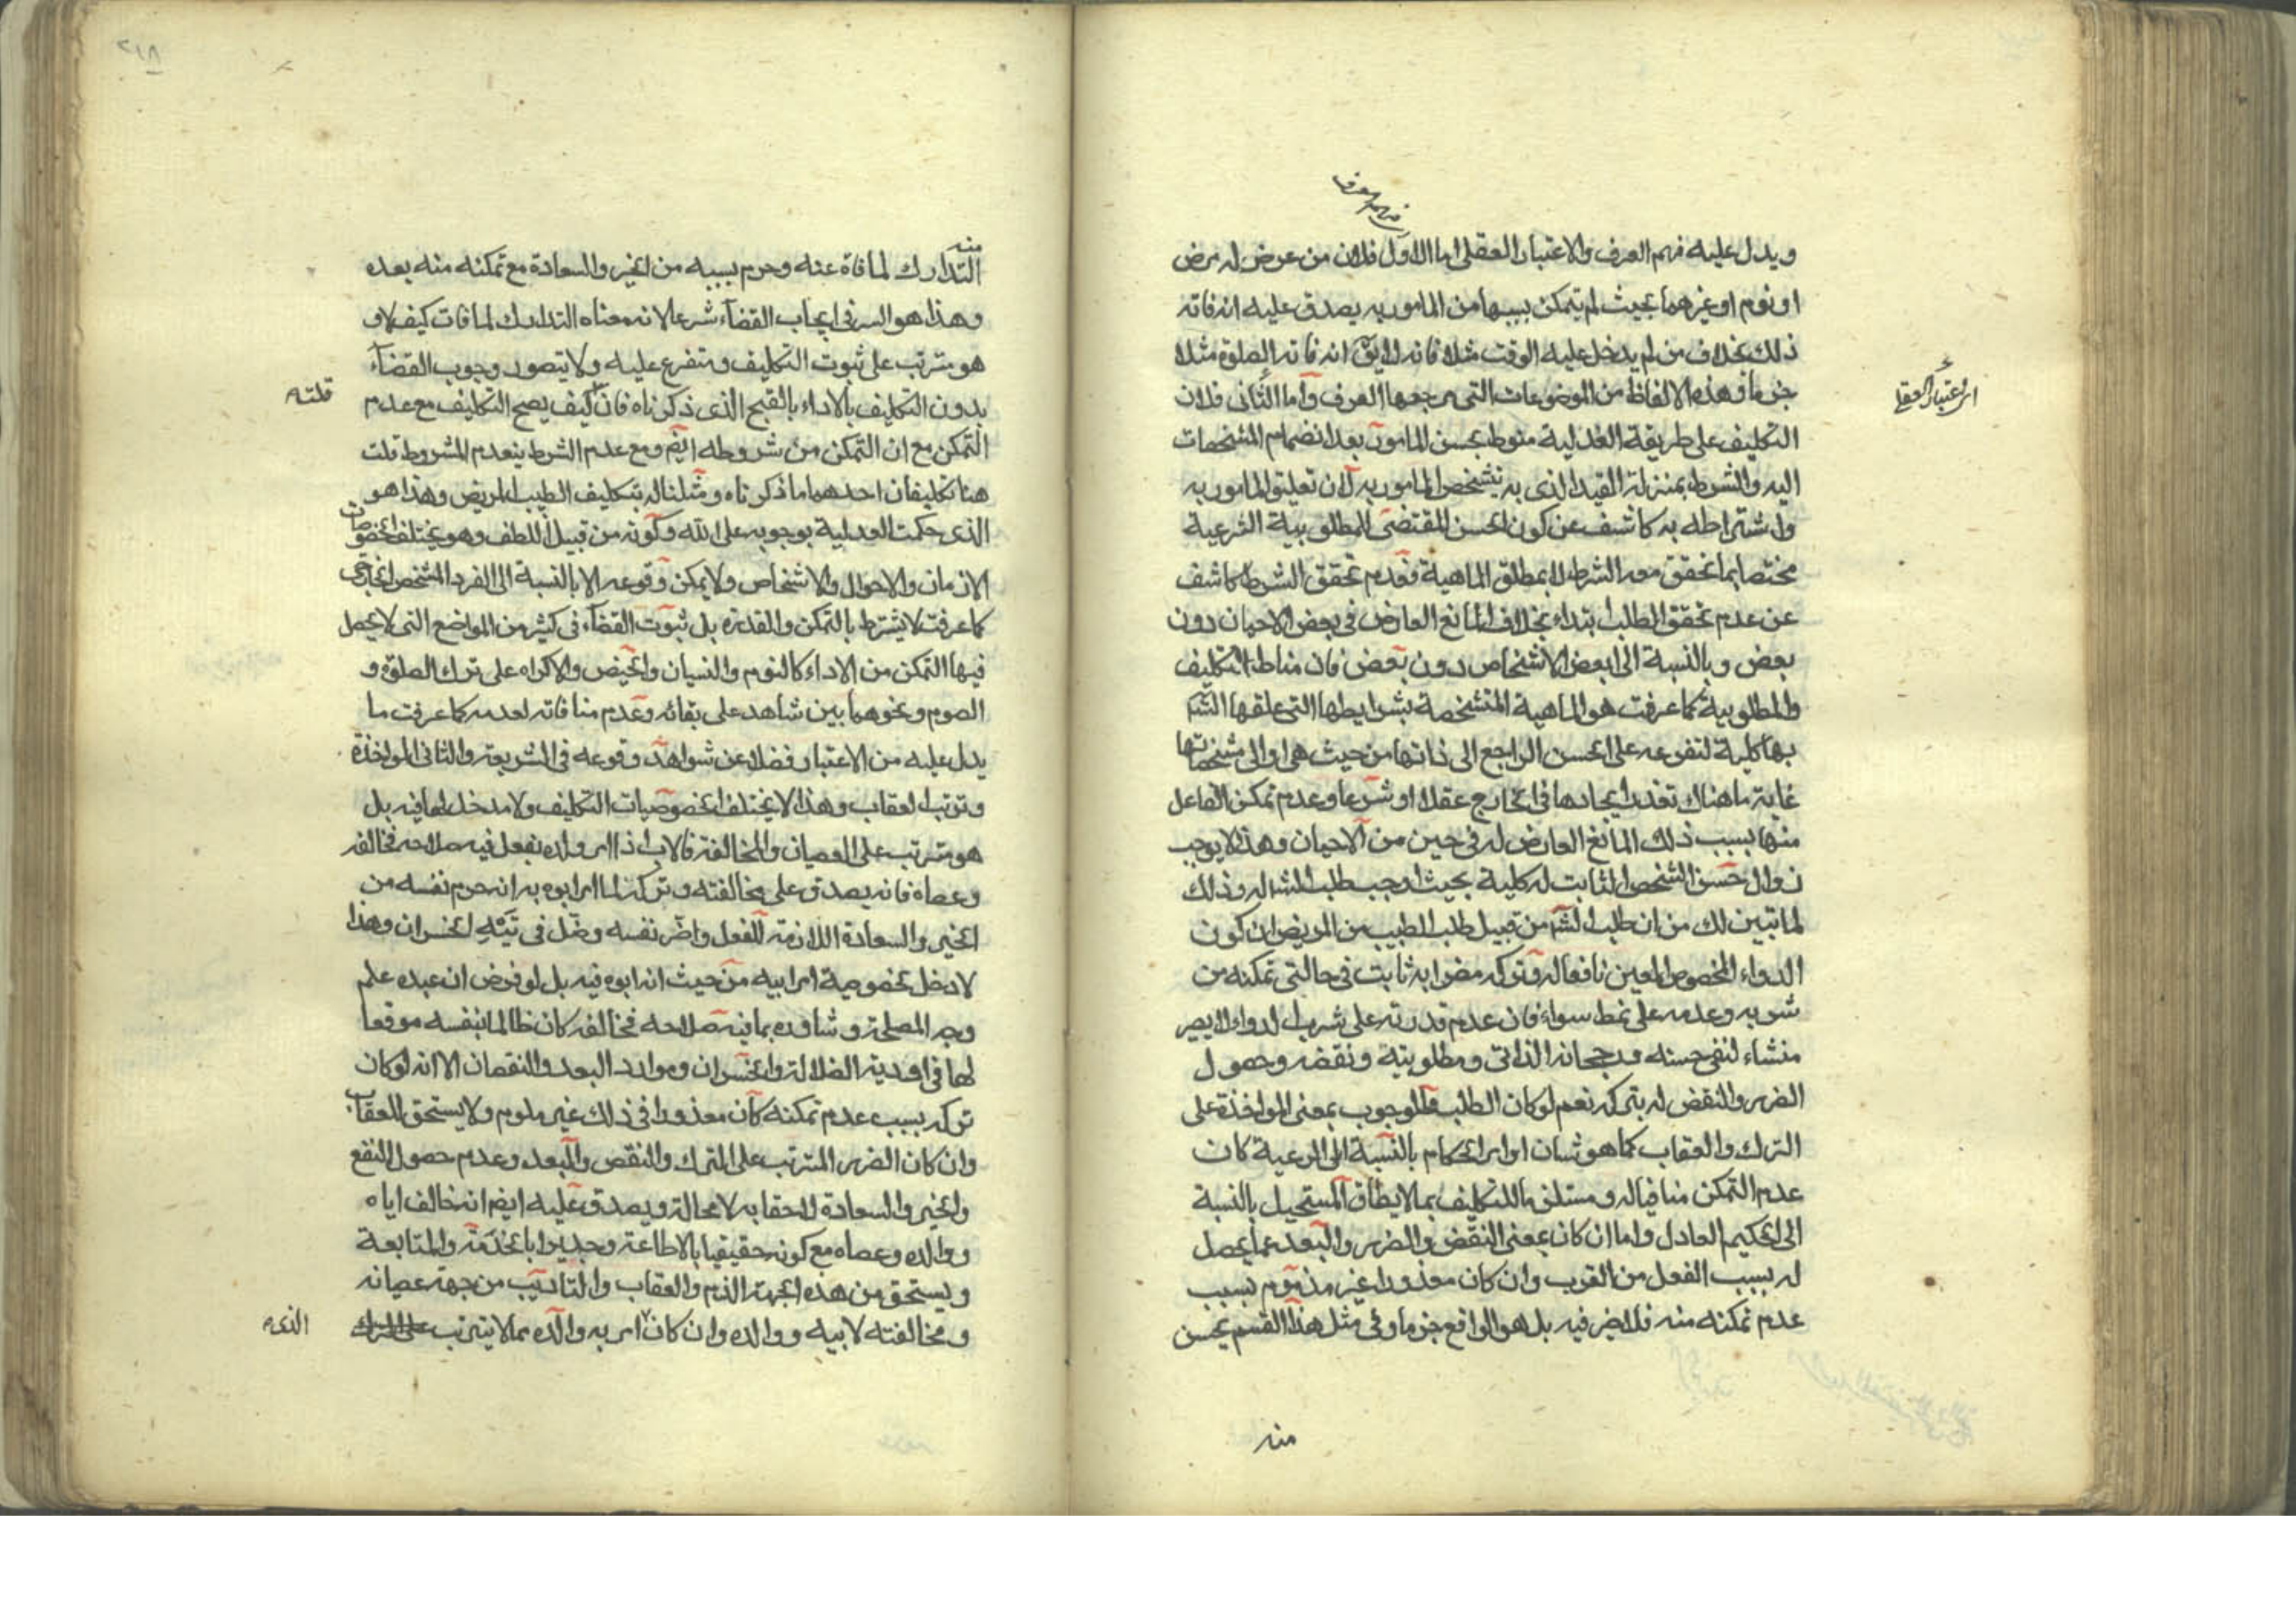 فهم العرف
ويدل عليه فهم العرف والاعتبار العقلى اما الاول فلان من عرض له مرض
او نوم او غيرهما بحيث لم يتمكن بسببها من المامور به يصدق عليه انه فاته
ذلك بخلاف من لم يدخل عليه الوقت مثلا فانه لا يق انه فاته الصلوة مثلا
جزما وهذه الالفاظ من الموضوعات التى مرجعها العرف واما الثانى فلان
اى الاعتبار العقلى
التكليف على طريقة العدلية منوط بحسن المامور به بعد انضمام المشخصات
اليه والشرط بمنزلة القيد الذى به يتشخص المامور به لان تعليق المامور به
واشتراطه به كاشف عن كون الحسن المقتضى للمطلوبية الشرعية
مختصا بما تحقق معه الشرط لا بمطلق الماهية فعدم تحقق الشرط كاشف
عن عدم تحقق الطلب ابتداء بخلاف المانع العارض فى بعض الاحيان دون
بعض وبالنسبة الى بعض الاشخاص دون بعض فان مناط التكليف
والمطلوبية كما عرفت هو الماهية المتشخصة بشرايطها التى علقها الشه
بها كلية لتفرعه على الحسن الراجع الى ذاتها من حيث هى او الى مشخصاتها
غاية ما هناك تعذر ايجادها فى الخارج عقلا او شرعا وعدم تمكن الفاعل
منها بسبب ذلك المانع العارض له فى حين من الاحيان وهذا لا يوجب
زوال حسن الشخص الثابت له كلية بحيث اوجب طلب الشه له وذلك
لما تبين لك من ان طلب الشه من قبيل طلب الطبيب من المريض ان كون
الدواء المخصوص المعين نافعا له وتركه مضرا به ثابت فى حالتى تمكنه من
شربه وعدمه على نمط سواء فان عدم قدرته على شرب الدواء لا يصير
منشاء لنفى حسنه ورجحانه الذاتى ومطلوبيته ونقضه وحصول
الضرر والنقض له بتركه نعم لو كان الطلب والوجوب بمعنى المواخذة على
الترك والعقاب كما هو شان اوامر الحكام بالنسبة الى الرعية كان
عدم التمكن منافيا له ومستلزما للتكليف بما لا يطاق المستحيل بالنسبة
الى الحكيم العادل واما ان كان بمعنى النقض والضرر والبعد عما يحصل
له بسبب الفعل من القرب وان كان معذورا غير مذموم بسبب
عدم تمكنه منه فلا ضير فيه بل هو الواقع جزما وفى مثل هذا القسم يحسن
منه
٢١٨
منه
التدارك لما فاة عنه وحرم بسببه من الخير والسعادة مع تمكنه منه بعده
وهذا هو السر فى ايجاب القضاء شرعا لانه معناه التدارك لما فات كيف لا و
هو مترتب على ثبوت التكليف ومتفرع عليه ولا يتصور وجوب القضاء
بدون التكليف بالاداء بالقبح الذى ذكرناه فان كيف يصح التكليف مع عدم
قلته
التمكن مع ان التمكن من شروطه ايضا ومع عدم الشرط ينعدم المشروط قلت
هنا تكليفان احدهما ما ذكرناه ومثلنا له بتكليف الطبيب للمريض وهذا هو
الذى حكمت العدلية بوجوبه على الله وكونه من قبيل اللطف وهو يختلف بخصوصيات
الازمان والاحوال والاشخاص ولا يمكن وقوعه الا بالنسبة الى الفرد المشخص الخارجى
كما عرفت لا يشترط بالتمكن والقدرة بل ثبوت القضاء فى كثير من المواضع التى لا يحصل
فيها التمكن من الاداء كالنوم والنسيان والحيض والاكراه على ترك الصلوة و
الصوم ونحوهما بين شاهد على بقائه وعدم منافاته لعدمه كما عرفت ما
يدل عليه من الاعتبار فضلا عن شواهد وقوعه فى الشريعة والثانى المواخذة
وترتب العقاب وهذا لا يختلف بخصوصيات التكليف ولا مدخل لها فيه بل
هو مترتب على العصيان والمخالفة فالاب اذا امر ولده بفعل فيه صلاحه فخالفه
وعصاه فانه يصدق على مخالفته وتركه لما امر ابوه به انه حرم نفسه من
الخير والسعادة اللازمة للفعل واضر نفسه وضل فى تيه الخسران وهذا
لا دخل بخصوصية امر ابيه من حيث انه ابوه فيه بل لو فرض ان عبده علم
وجه المصلحة وشاوره بما فيه صلاحه فخالفه كان ظالما بنفسه موقعا
لها فى اودية الضلالة والخسران وموارد البعد والنقصان الا انه لو كان
تركه بسبب عدم تمكنه كان معذورا فى ذلك غير ملوم ولا يستحق للعقاب
وان كان الضرر المترتب على الترك والنقص والبعد وعدم حصول النفع
والخير والسعادة لاحقا به لا محالة ويصدق عليه ايضا انه خالف اباه
ووالده وعصاه مع كونه حقيقيا بالاطاعة وجديرا بالخدمة والمتابعة
ويستحق من هذه الجهة الذم والعقاب والتاديب من جهة عصيانه
ومخالفته لابيه ووالده وان كان امر به والده مما لا يترتب على الترك
الذى